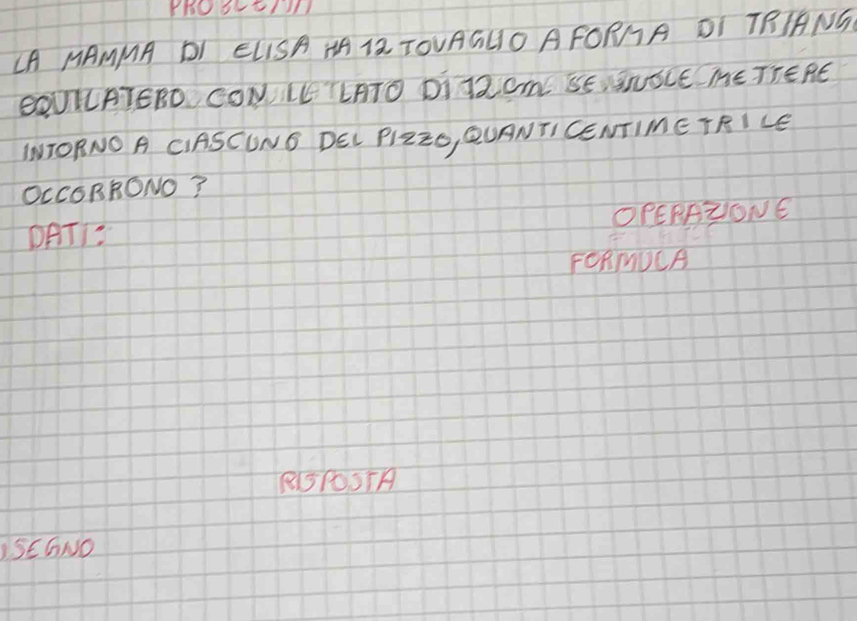 PROBLEMA
LA MAMMA DI ELISA HA 12 TOVAGLIO A FORMA DI TRIANG
EQUILATERO CON IL LATO DI 12 cm SE VUOLE METTERE
INTORNO A CIASCUNO DEL PIZZO, QUANTI CENTIMETRI LE
OCCORRONO?
DATI:
OPERAZIONE
FORMULA
RISPOSTA
ISEGNO